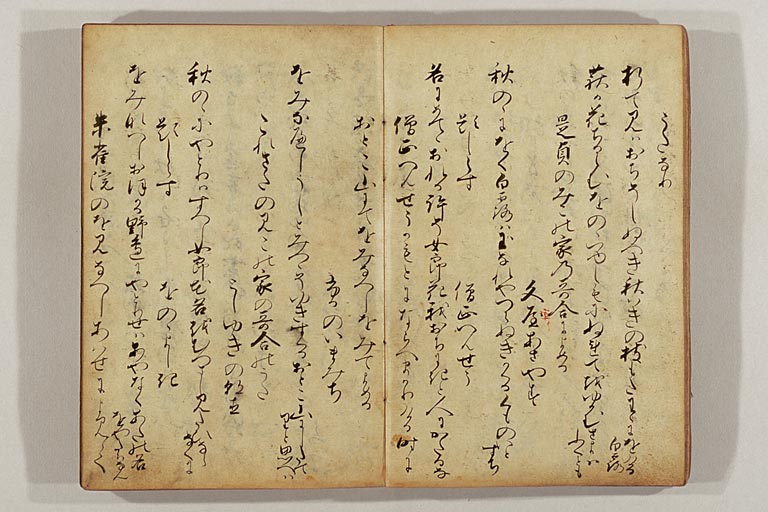 折て見はおちそしぬへき秋はきの枝もたわゝにをける
白露
萩か花ちるらむをのゝつゆしもにぬれてをゆかむさよは
ふくとも
是貞のみこの家の哥合によめる
文屋あさやす
秋のゝにをく白露は玉なれやつらぬきかくるくものいと
すち
題しらす
僧正へんせう
名にめておれる許そ女郎花我おちにきと人にかたるな
僧正へんせうかもとにならへまかりける時に
おとこ山にてをみなへしをみてよめる
ふるのいまみち
をみなへしうしとみつゝそゆきすくるおとこ山にしたて
りと思へは
これさたのみこの家の哥合のうた
としゆきの朝臣
秋のゝにやとりはすへし女郎花名をむつましみたひなら
なくに
題しらす
をのゝよし木
をみなへしおほかる野辺にやとりせはあやなくあたの名
をやたちなん
朱雀院のをみなへしあはせによみて